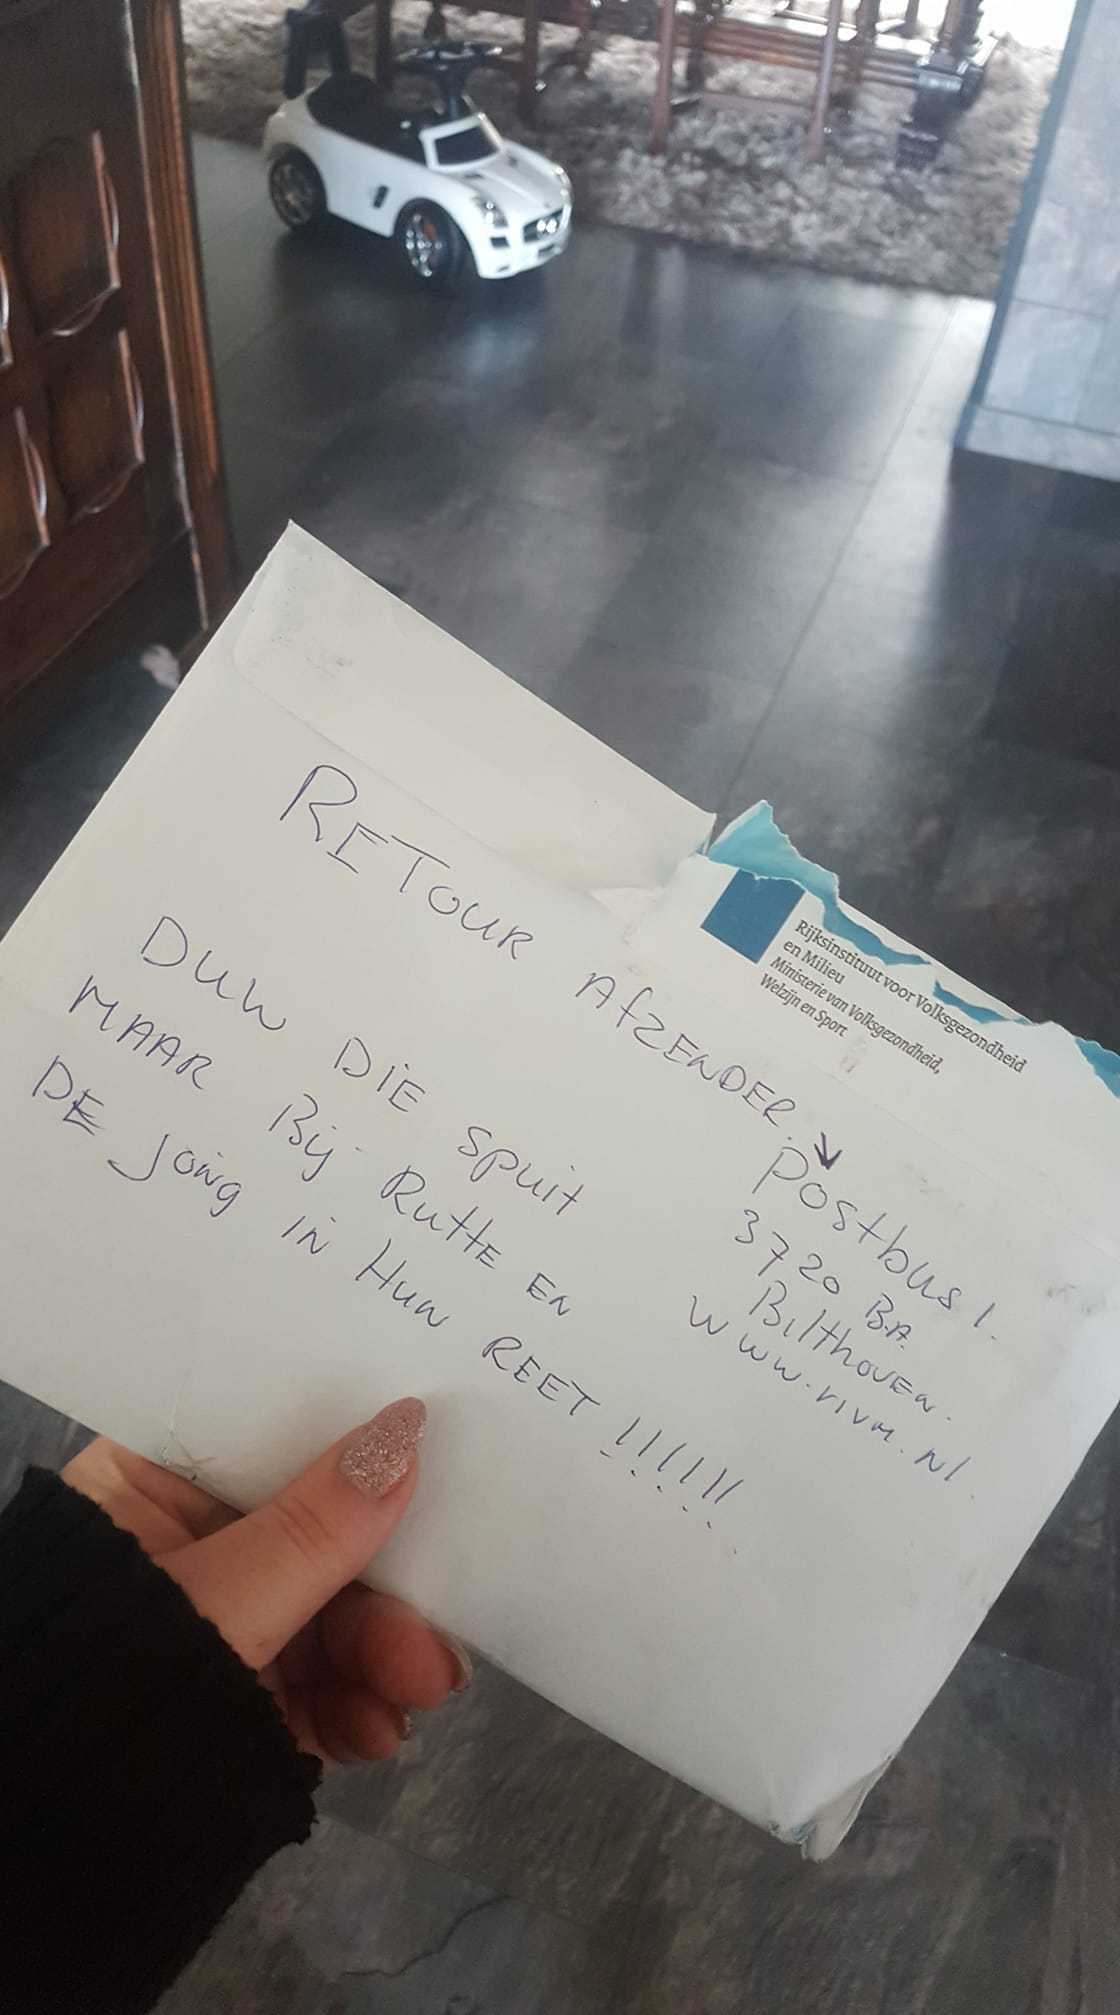 Rijksinstituut voor Volksgezondheid
en Milieu
Ministerie van Volksgezondheid,
Welzijn en Sport
RETOUR AFZENDER.
Postbus 1.
3720 B.A.
Bilthoven.
www.rivm.nl.
DUW DIE SPUIT
MAAR Bij RuttE EN
DE Jong IN Hun REET !!!!!!